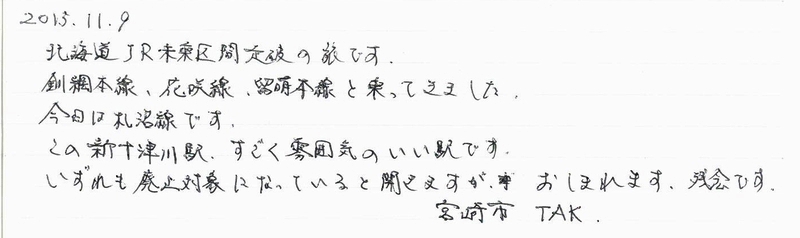 2015.11.9
北海道JR未乗区間走破の旅です.
釧網本線、花咲線、留萌本線と乗ってきました.
今日は札沼線です.
この新十津川駅、すごく雰囲気のいい駅です.
いずれも廃止対象になっていると聞えますが、おしまれます、残念です.
宮崎市 TAK.